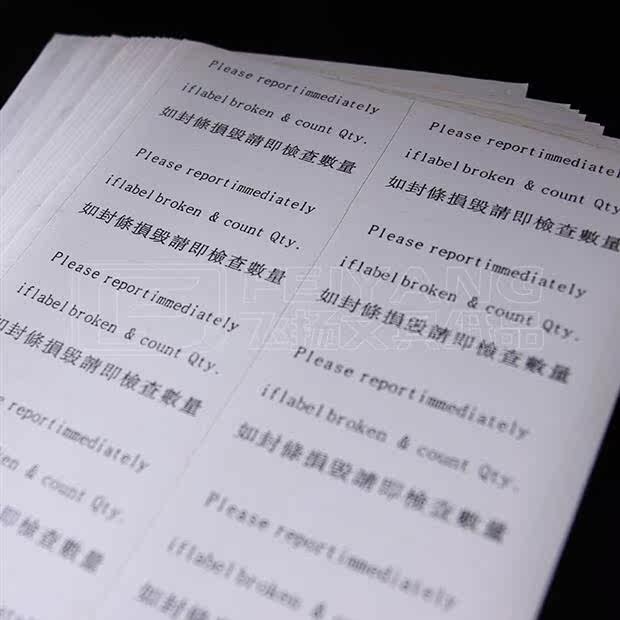 Please reportimmediately
iflabelbroken & count Qty.
如封條損毀請即檢查數量
Please reportimmediately
iflabelbroken & count Qty.
如封條損毀請即檢查數量
Please reportimmediately
iflabelbroken & count Qty.
封條損毀請即檢查數量
reportimmediately
& count Qty.
即檢查數量
Please reportimmediatel
iflabelbroken & count Qty
如封條損毀請即檢查數量
Please reportimmediately
iflabelbroken & count Qty.
如封條損毀請即檢查數量
Please reportimmediately
iflabelbroken & count Qty.
如封條損毀請即檢查數量
Please reportimmediately
iflabelbroken & count
如封條損毀請即檢查
FEIYANG